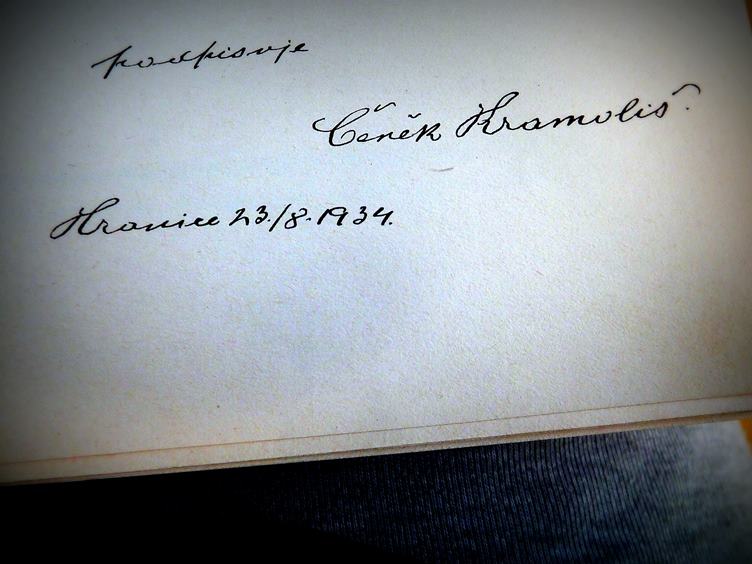 podpisuje
Čeněk Kramoliš.
Hranice 23./8. 1934.